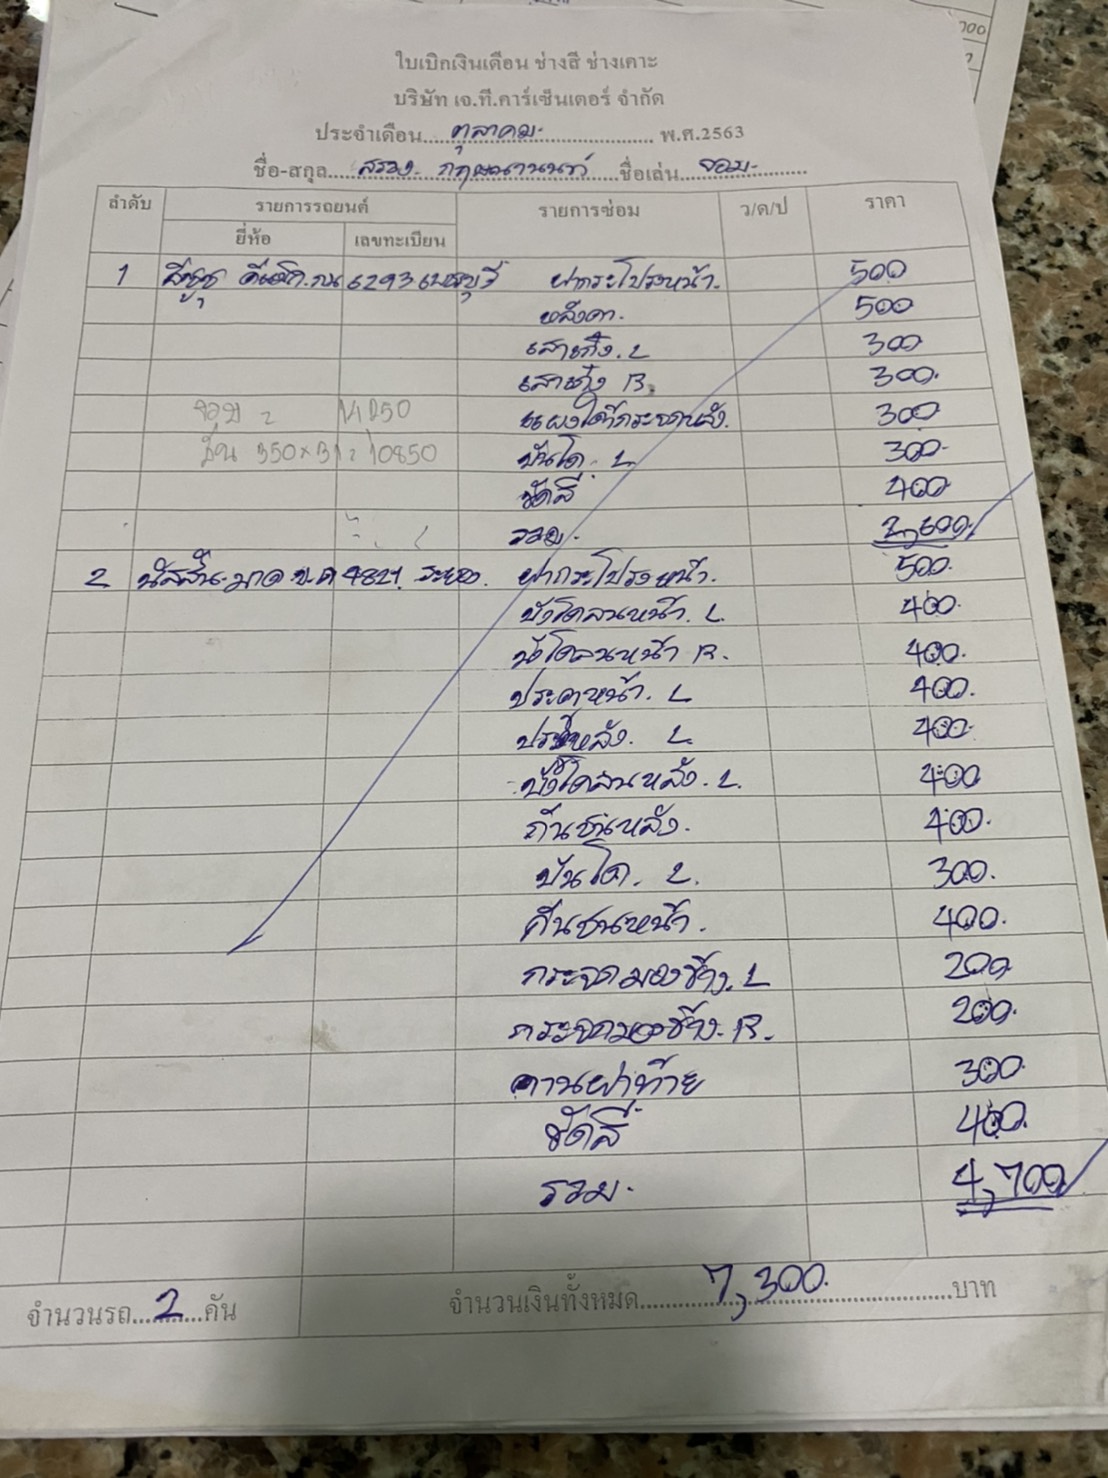 ใบเบิกเงินเดือน ช่างสี ช่างเคาะ
บริษัท เจ.ที.คาร์เซ็นเตอร์ จำกัด
ประจำเดือน....ตุลาคม.................... พ.ศ.2563
ชื่อ-สกุล.... ชื่อเล่น...จอม.........
ลำดับ รายการรถยนต์ รายการซ่อม ว/ด/ป ราคา
ยี่ห้อ เลขทะเบียน
1 อีซูซุ 6293 ฝากระโปรงหน้า. 500
หลังคา. 500
เสาเก๋ง. L 300
เสาเก๋ง R. 300.
จอม = 14250 แผงใต้กระจกหลัง. 300
350×31 = 10850 บันได. L 300
ขัดสี 400
รวม. 2,600.
2 นิสสัน. มาค 4821 ระยอง. ฝากระโปรงหน้า. 500.
บังโคลนหน้า. L. 400.
บังโคลนหน้า R. 400.
ประตูหน้า. L 400.
ประตูหลัง. L 400.
บังโคลนหลัง. L. 400
กันชนหลัง. 400.
บันได. L. 300.
กันชนหน้า. 400.
กระจกมองข้าง. L 200
กระจกมองข้าง. R. 200.
ฝาท้าย 300.
ขัดสี 400.
รวม. 4,700
จำนวนรถ...2...คัน จำนวนเงินทั้งหมด........7,300.................บาท